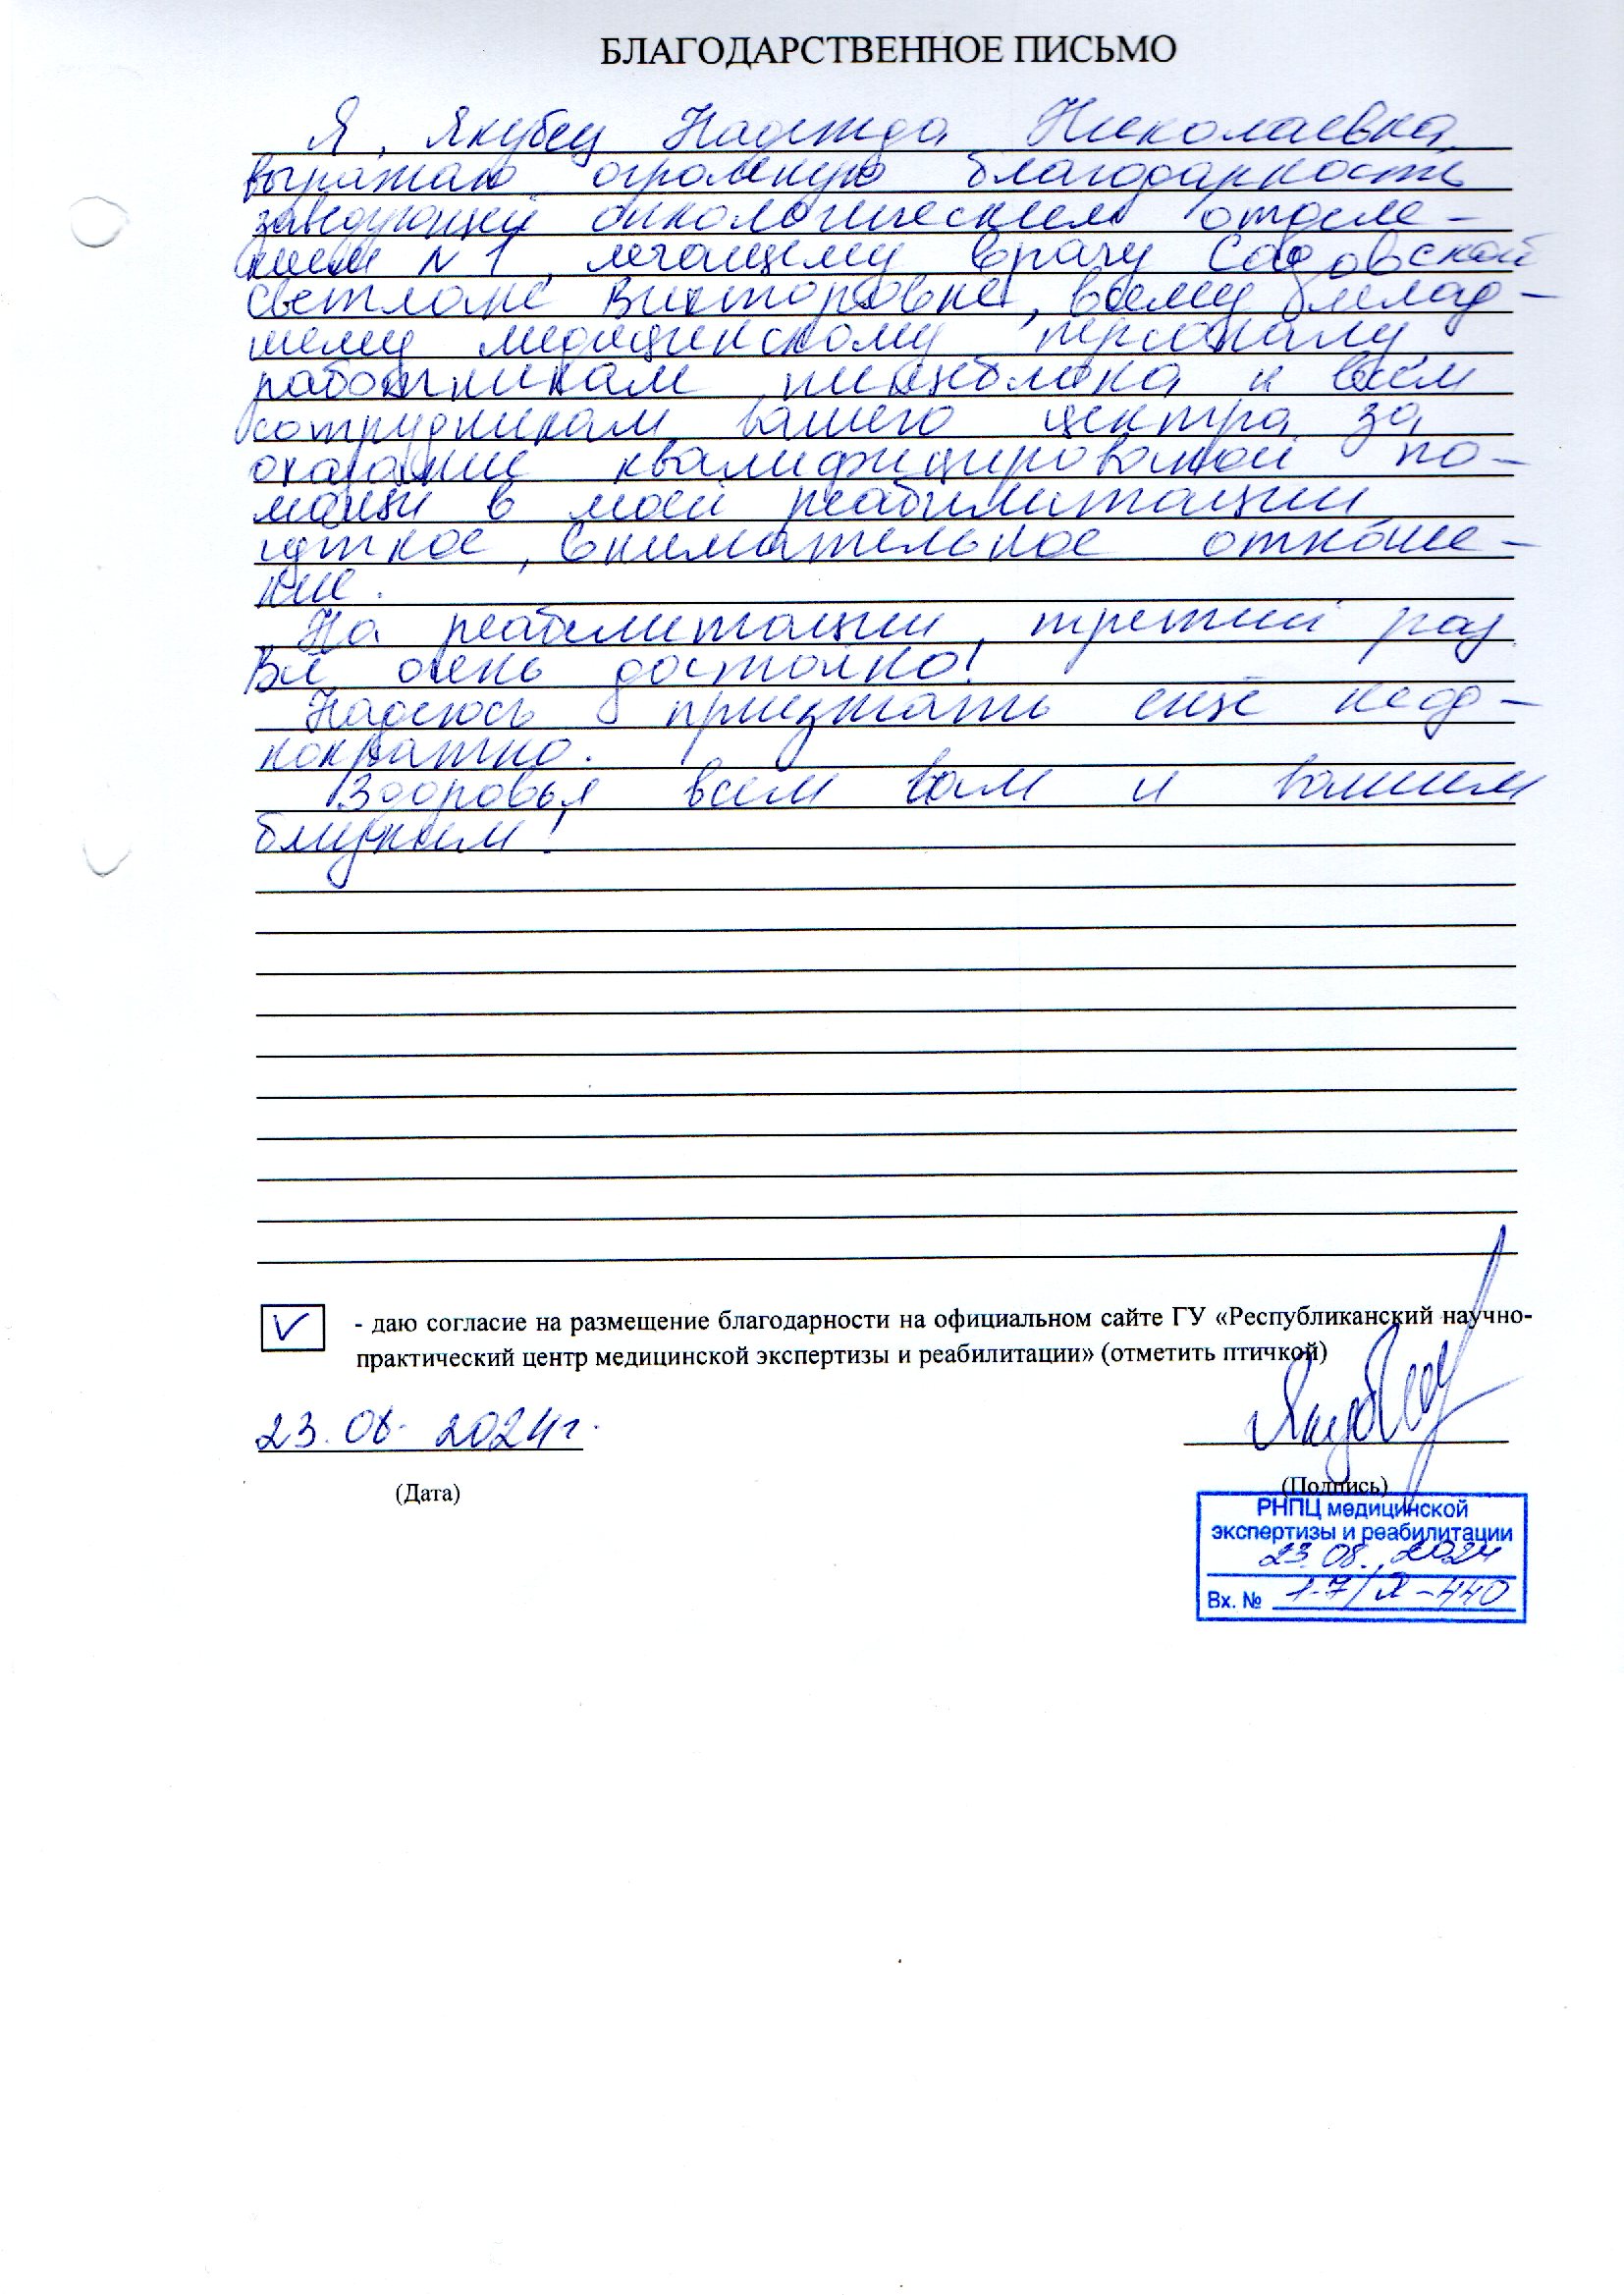 БЛАГОДАРСТВЕННОЕ ПИСЬМО
Я, Якубец Надежда Николаевна,
выражаю огромную благодарность
заведующей онкологическим отделе-
нием N 1, лечащему врачу Садовской
Светлане Викторовне, всему млад-
шему медицинскому персоналу,
работникам пищеблока и всем
сотрудникам вашего центра за
оказание квалифицированной по-
мощи в моей реабилитации,
чуткое, внимательное отноше-
ние.
На реабилитации третий раз.
Всё очень достойно!
Надеюсь приезжать ещё неод-
нократно.
Здоровья всем вам и вашим
близким!
- даю согласие на размещение благодарности на официальном сайте ГУ «Республиканский научно-
практический центр медицинской экспертизы и реабилитации» (отметить птичкой)
23.08.2024г.
(Дата)
(Подпись)
РНПЦ медицинской
экспертизы и реабилитации
23.08.2024
Вх. № 1-7/Я-440